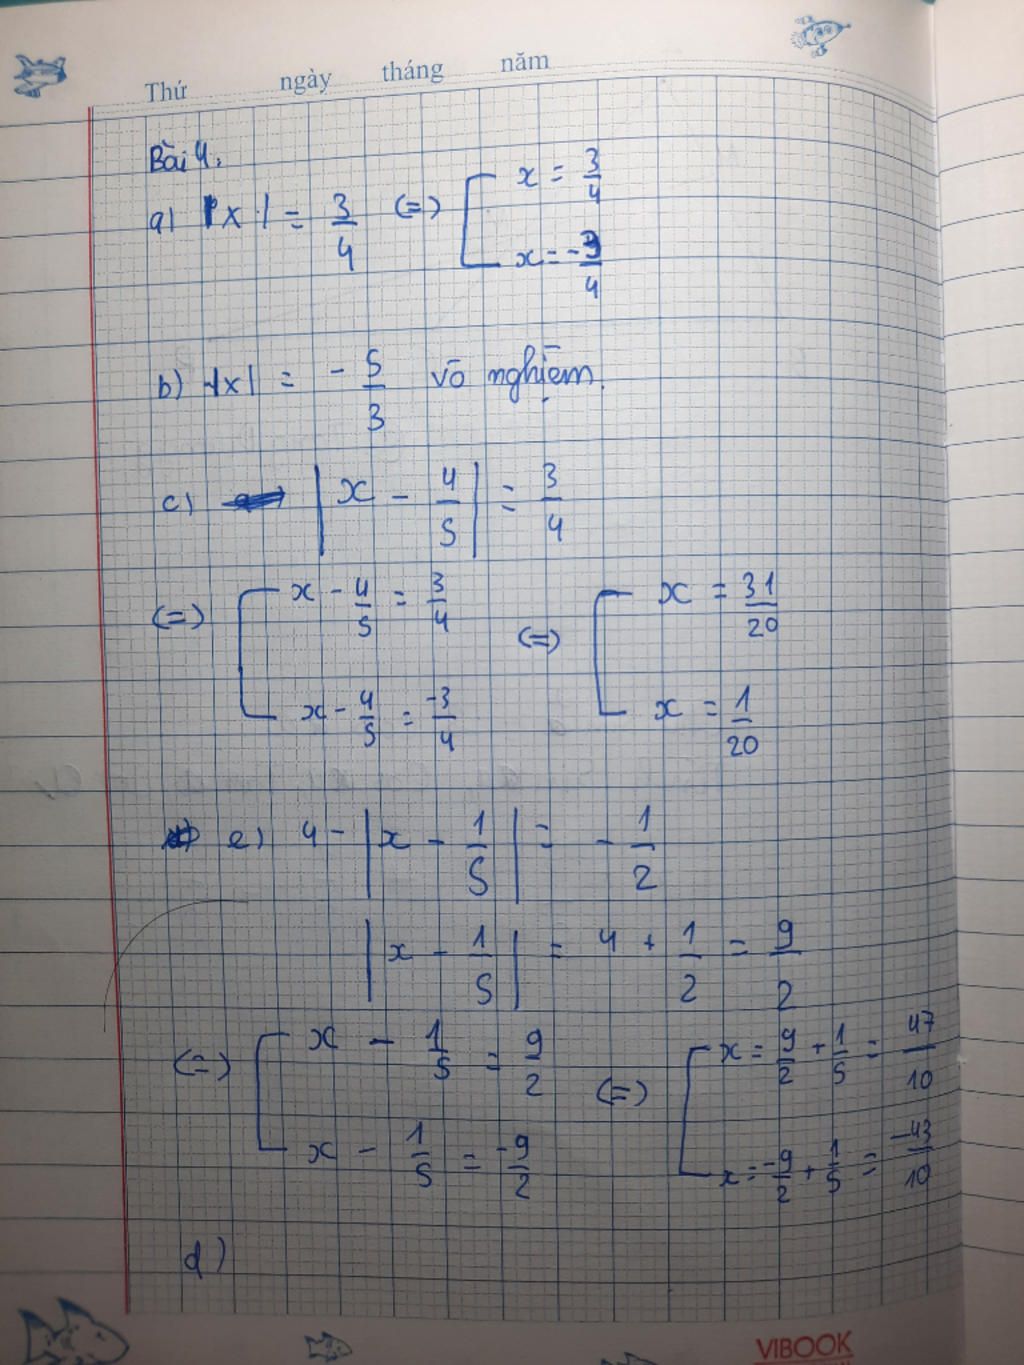 Thứ ngày tháng năm
Bài 4.
a) |x| = 3/4 (=) [ x = 3/4
x = -3/4
b) |x| = -5/3 vô nghiệm.
c) |x - 4/5| = 3/4
(=) [ x - 4/5 = 3/4 (=) [ x = 31/20
x - 4/5 = -3/4 x = 1/20
e) 4 - |x - 1/5| = -1/2
|x - 1/5| = 4 + 1/2 = 9/2
(=) [ x - 1/5 = 9/2 (=) [ x = 9/2 + 1/5 = 47/10
x - 1/5 = -9/2 x = -9/2 + 1/5 = -43/10
d)
VIBOOK